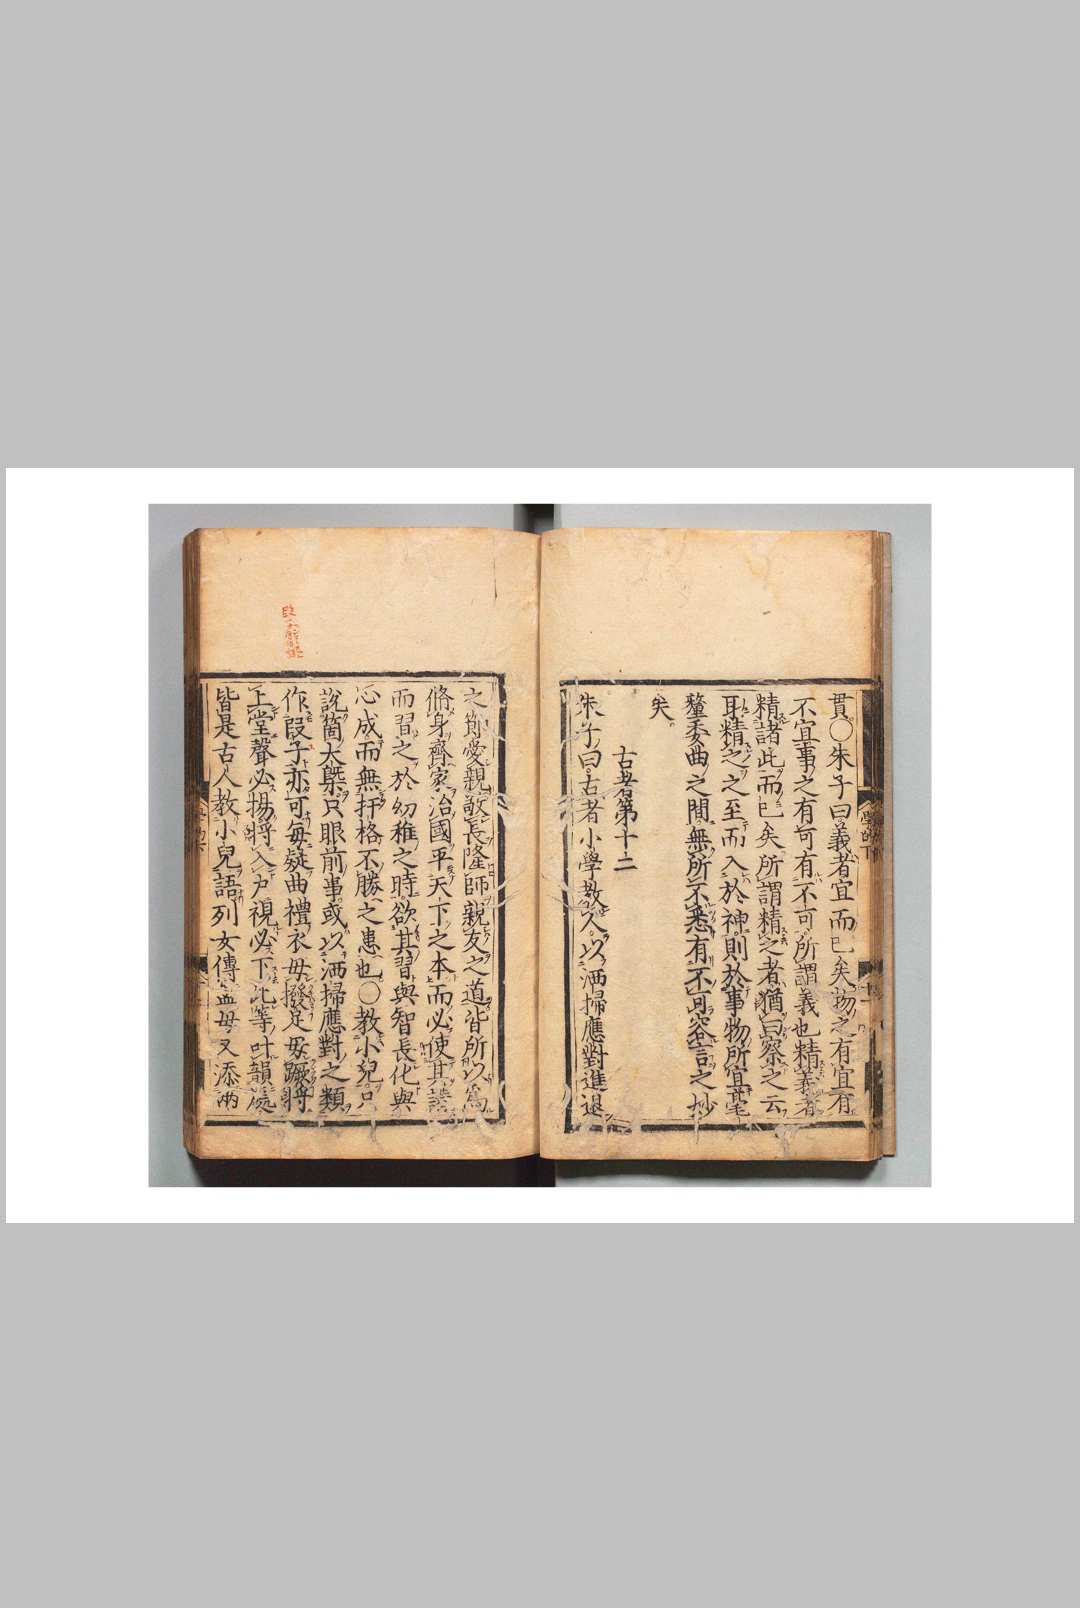 貫○朱子曰義者宜而已矣物之有宜有
不宜事之有可有不可所謂義也精義者
精諸此而已矣所謂精之者猶曰察之云
耳精之之至而入於神則於事物所宜毫
釐委曲之間無所不悉有不可容言之妙
矣
古者第十二
朱子曰古者小學教人以洒掃應對進退
之節愛親敬長隆師親友之道皆所以爲
脩身齊家治國平天下之本而必使其講
而習之於幼稚之時欲其習與智長化與
心成而無扞格不勝之患也○教小兒只
說箇大槩只眼前事或以洒掃應對之類
作段子亦可每疑曲禮衣毋撥足毋蹶將
上堂聲必揚將入戶視必下此等叶韻處
皆是古人教小兒語列女傳孟母又添兩